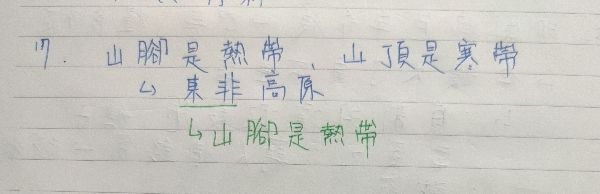 17. 山腳是熱帶、山頂是寒帶
↳ 東非高原
↳山腳是熱帶